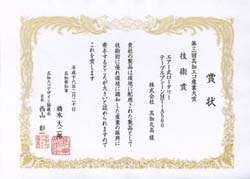 賞状
第二回高知エコ産業大賞
技術賞
エアー式ロータリー
テーブルマシーンMT-A3560
株式会社 高知丸高 殿
貴社の製品は環境に配慮された製品として
技術的に優れ環境に調和した産業の振興に
寄与するところが大きいと認められますので
これを賞します
平成十六年二月二十日
高知県知事
橋本大二郎
高知エコデザイン協議会
会長 西山彰一